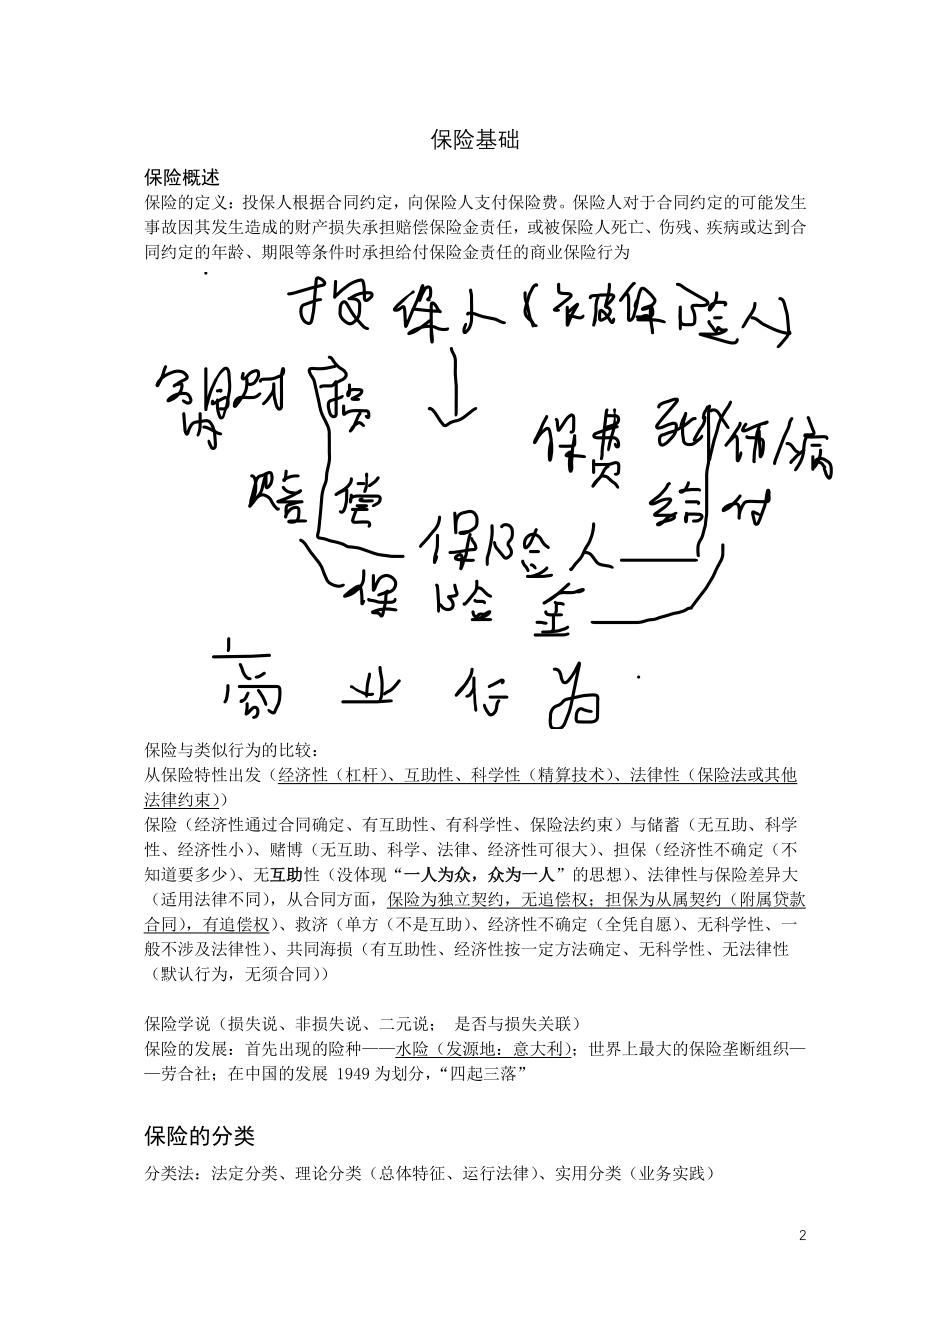 保险基础
保险概述
保险的定义：投保人根据合同约定，向保险人支付保险费。保险人对于合同约定的可能发生
事故因其发生造成的财产损失承担赔偿保险金责任，或被保险人死亡、伤残、疾病或达到合
同约定的年龄、期限等条件时承担给付保险金责任的商业保险行为
投保人（被保险人）
合同财损
内
保费 死 伤 病
赔偿
给付
保险人
保险金
商业行为
保险与类似行为的比较：
从保险特性出发（经济性（杠杆）、互助性、科学性（精算技术）、法律性（保险法或其他
法律约束））
保险（经济性通过合同确定、有互助性、有科学性、保险法约束）与储蓄（无互助、科学
性、经济性小）、赌博（无互助、科学、法律、经济性可很大）、担保（经济性不确定（不
知道要多少）、无互助性（没体现“一人为众，众为一人”的思想）、法律性与保险差异大
（适用法律不同），从合同方面，保险为独立契约，无追偿权；担保为从属契约（附属贷款
合同），有追偿权）、救济（单方（不是互助）、经济性不确定（全凭自愿）、无科学性、一
般不涉及法律性）、共同海损（有互助性、经济性按一定方法确定、无科学性、无法律性
（默认行为，无须合同））
保险学说（损失说、非损失说、二元说； 是否与损失关联）
保险的发展：首先出现的险种——水险（发源地：意大利）；世界上最大的保险垄断组织—
—劳合社；在中国的发展 1949 为划分，“四起三落”
保险的分类
分类法：法定分类、理论分类（总体特征、运行法律）、实用分类（业务实践）
2